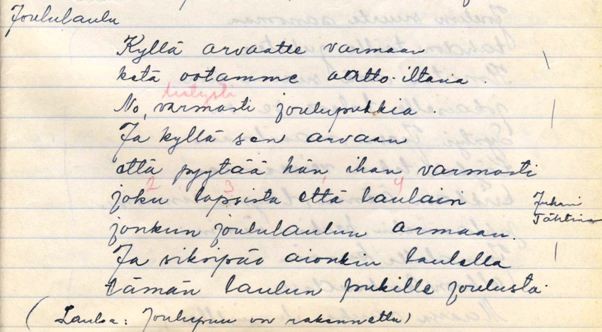 Joululaulu
Kyllä arvaatte varmaan
ketä ootamme aatto-iltana.
tietysti
No, varmasti joulupukkia.
Ja kyllä sen arvaan
että pyytää hän ihan varmasti
2 3 1 4
joku lapsista että laulain
Juhani
jonkun joululaulun armaan.
Ja siksipä aionkin laulella
tämän laulun pukille joulusta.
(Laulaa: Joulupuu on rakennettu)